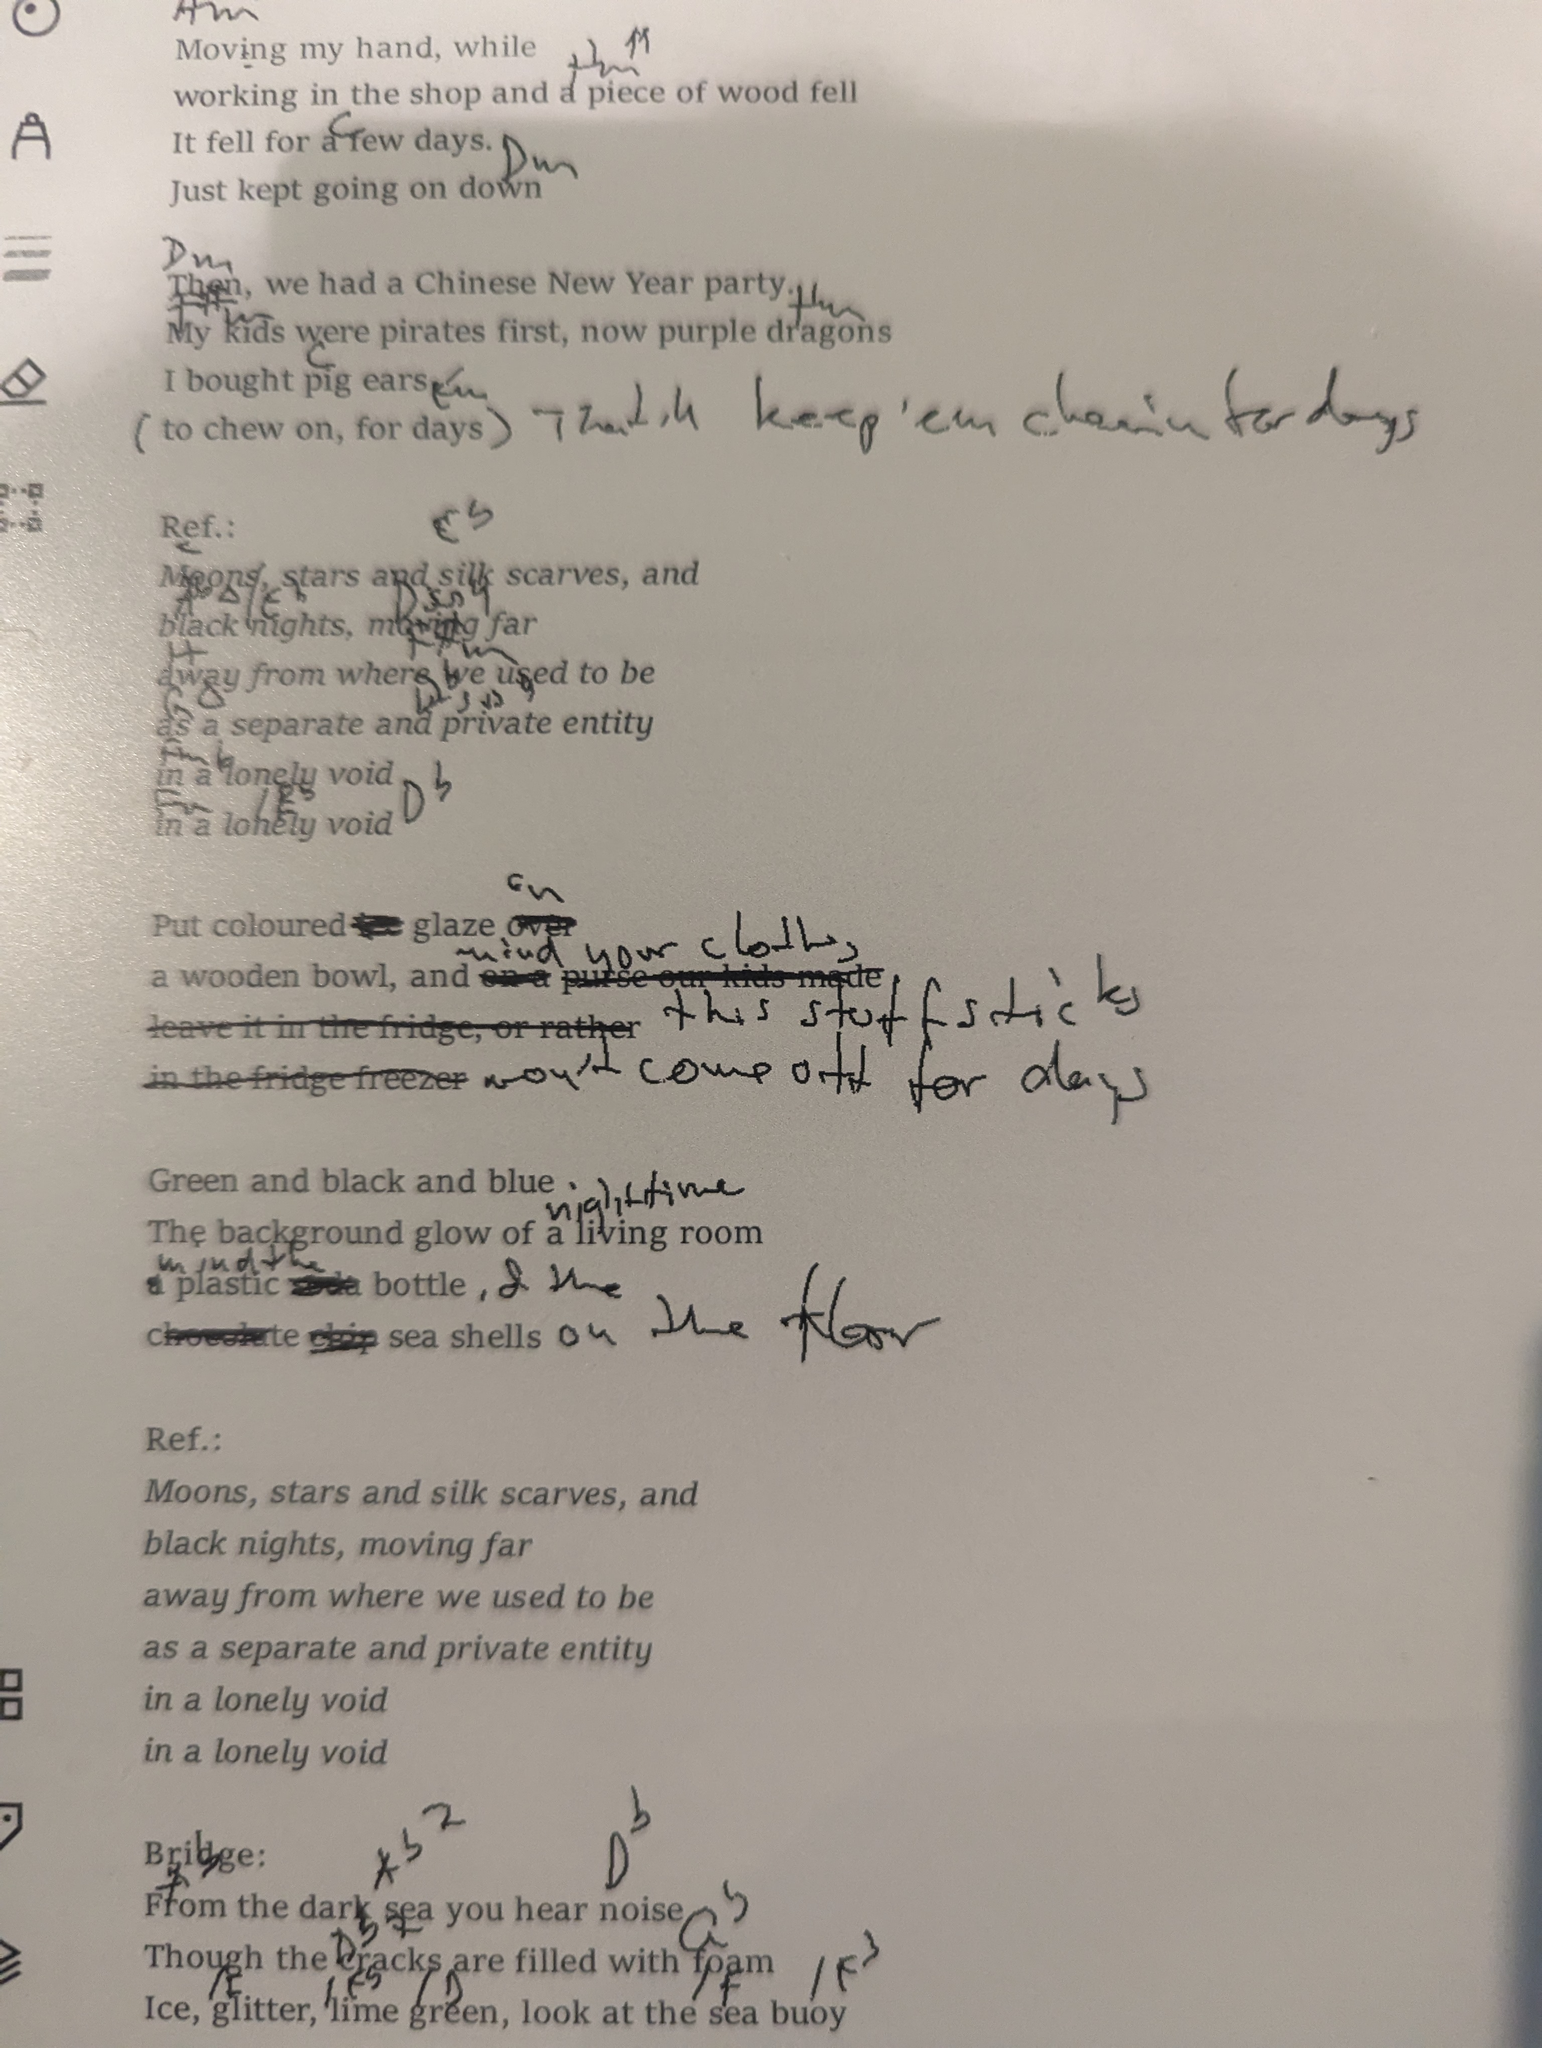 Am
Moving my hand, while
working in the shop and a piece of wood fell
C
It fell for a few days.
Dm
Just kept going on down
Dm
Then, we had a Chinese New Year party.
My kids were pirates first, now purple dragons
C
I bought pig ears
(to chew on, for days) keep 'em for days
Ref.:
Moons, stars and silk scarves, and
black nights, moving far
away from where we used to be
as a separate and private entity
in a lonely void
Db
in a lonely void
on
Put coloured glaze over
mind your clothes
a wooden bowl, and on a purse our kids made
leave it in the fridge, or rather this stuff sticks
in the fridge freezer won't come off for days
Green and black and blue
nighttime
The background glow of a living room
mind the
a plastic soda bottle, & the
chocolate chip sea shells on the floor
Ref.:
Moons, stars and silk scarves, and
black nights, moving far
away from where we used to be
as a separate and private entity
in a lonely void
in a lonely void
Ab7 Db
Bridge:
From the dark sea you hear noise
Gb
Db7
Though the cracks are filled with foam
/F /Eb /D /F
Ice, glitter, lime green, look at the sea buoy